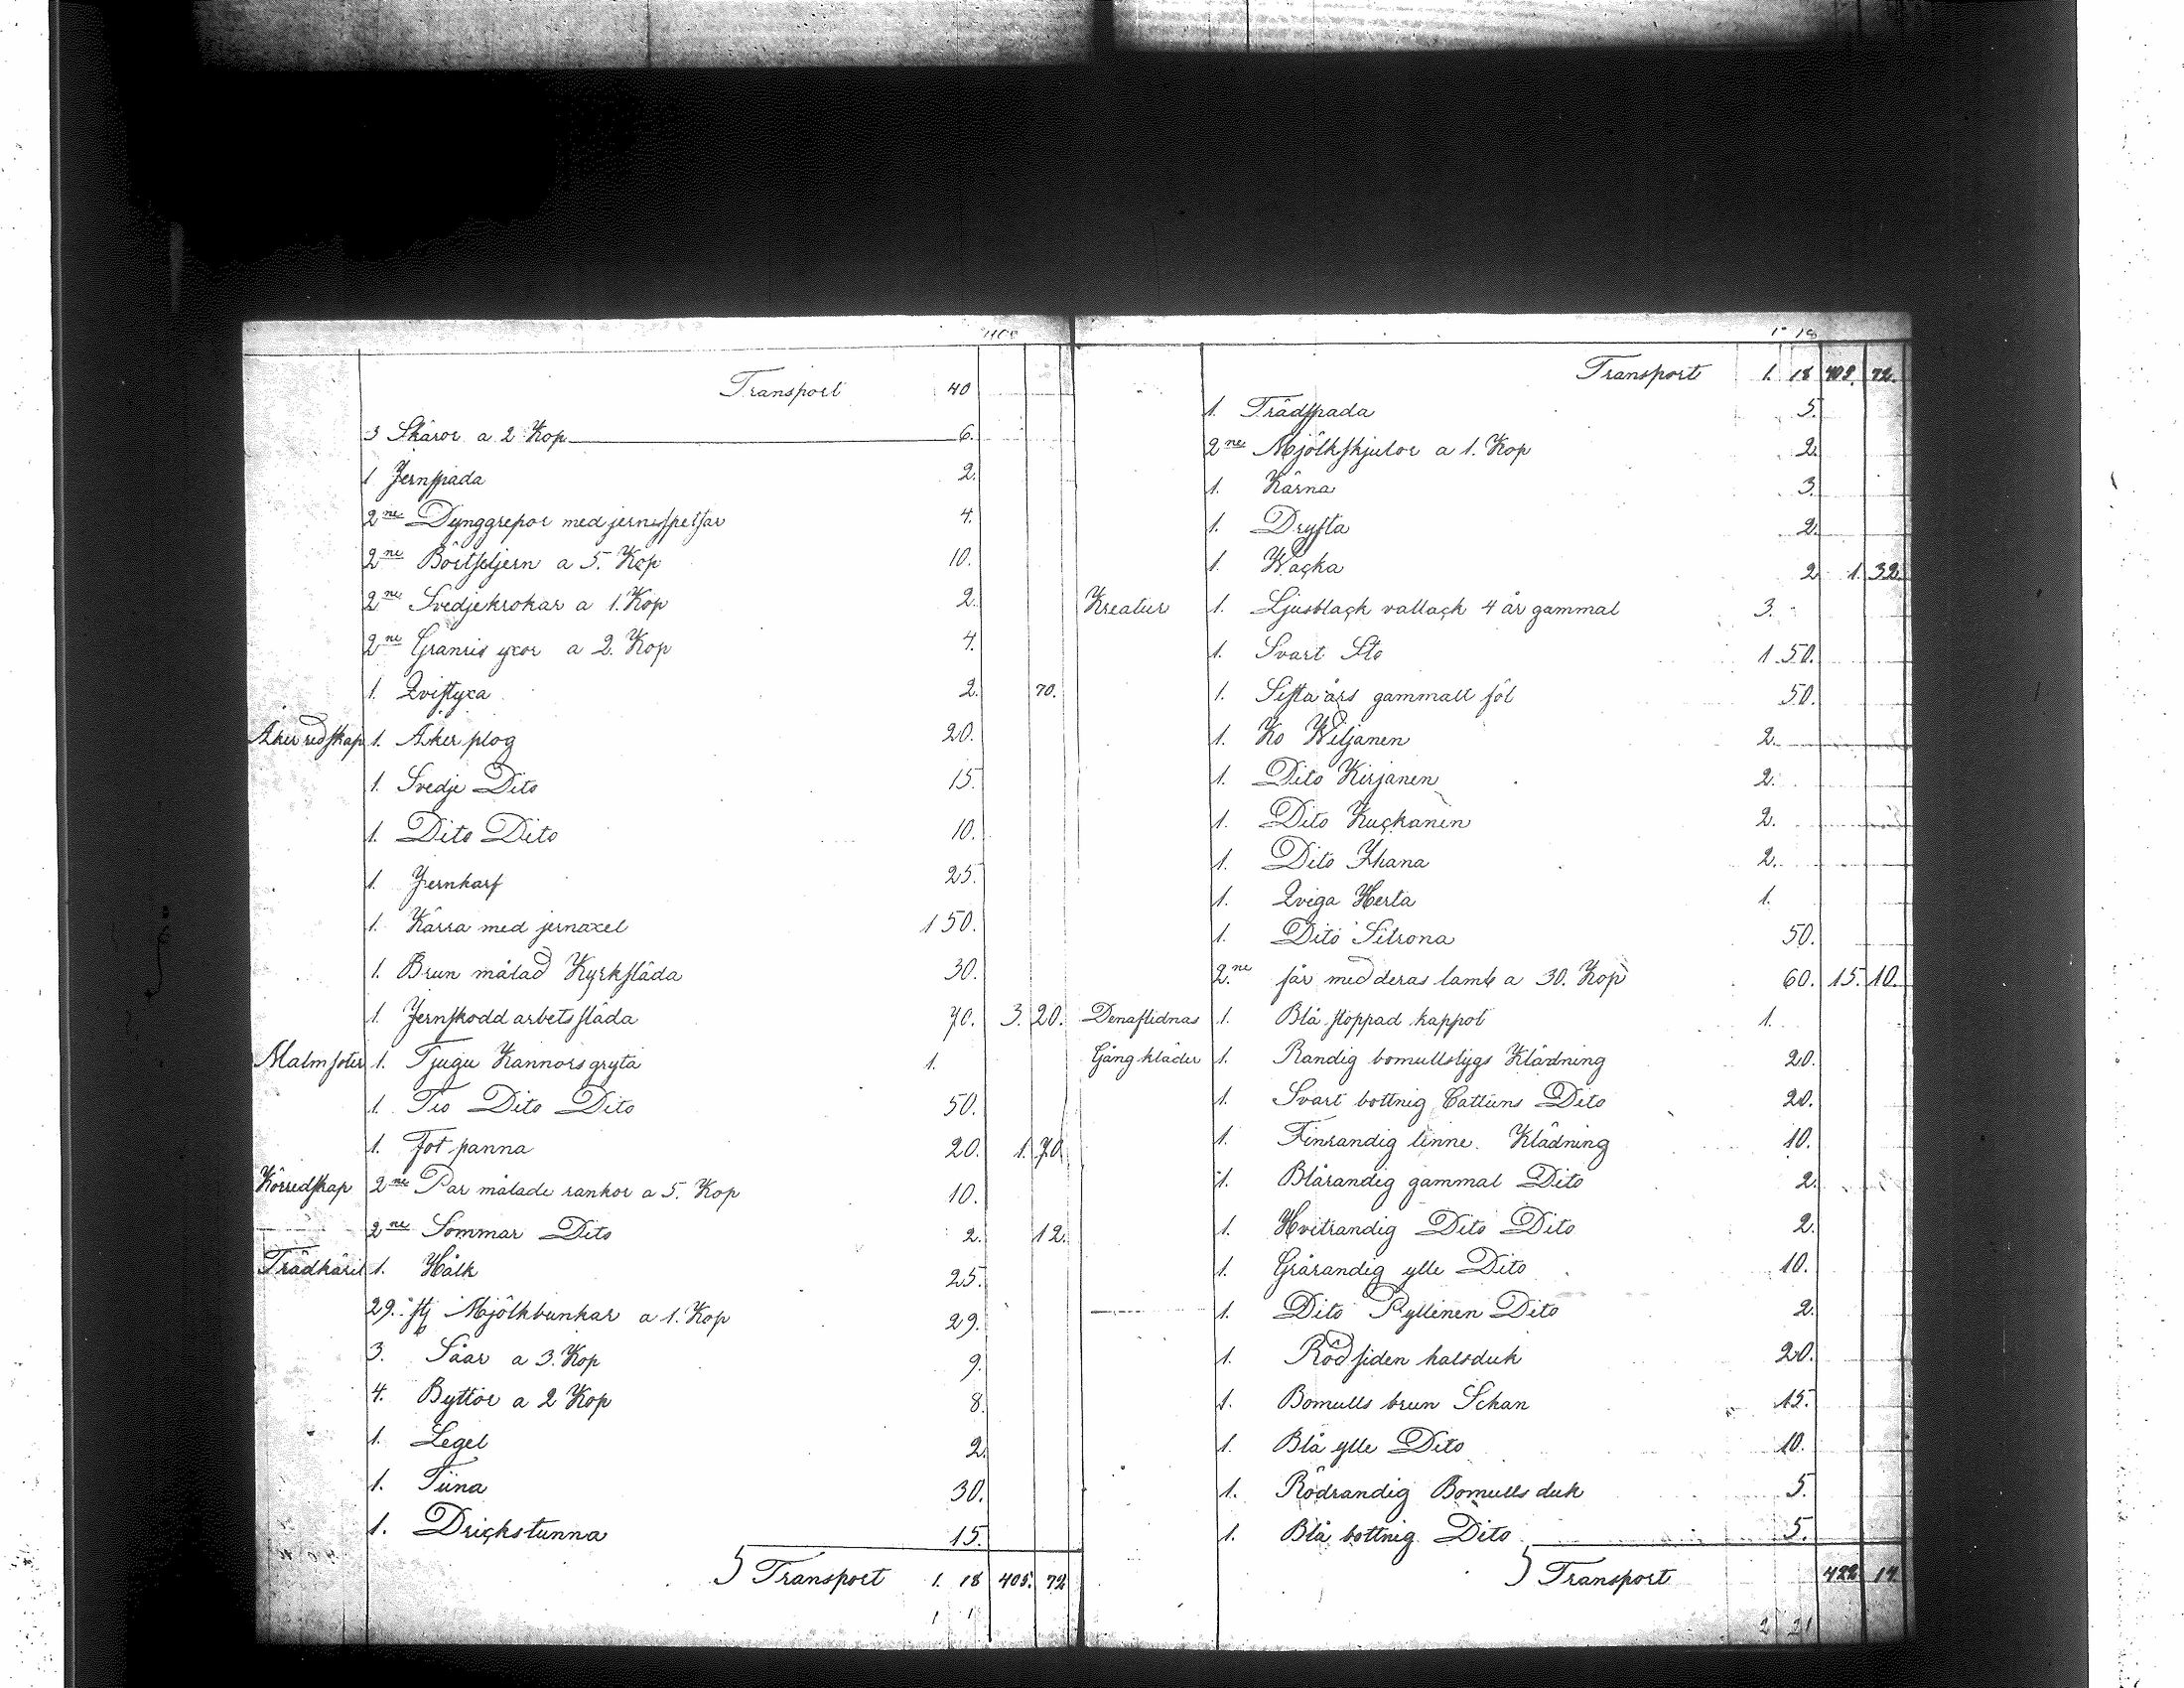 Transport 40
3 Skäror a 2 Kop 6.
1 Jernspada 2.
2ne Dynggrepor med jernspetsar 4.
2ne a 5. Kop 10.
2ne Svedjekrokar a 1. Kop 2.
2ne Granris yxor a 2. Kop 4.
1. Qvistyxa 2. 70.
Åkerredskap 1. Åker plog 20.
1. Svedje Dito 15.
1. Dito Dito 10.
1. Jernharf 25.
1. Kärra med jernaxel 1 50.
1. Brun målad Kyrksläda 30.
1. Jernskodd arbetssläda 70. 3. 20.
Malmsoter 1. Tjugu Kannors gryta 1.
1. Tio Dito Dito 50.
1. Fot panna 20. 1. 70.
Körredskap 2ne Par målade rankor a 5. Kop 10.
2ne Sommar Dito 2. 12.
Trädkäril 1. Hålk 25.
29. stj Mjölkbunkar a 1. Kop 29.
3. Såar a 3. Kop 9.
4. Byttor a 2 Kop 8.
1. Legel 2.
1. Tiina 30.
1. Drickstunna 15.
Transport 1. 18 408. 72
1 18
Transport 1. 18 408. 72.
1. Trädspada 5.
2ne Mjölkskjulor a 1. Kop 2.
1. Kärna 3.
1. Dryfta 2.
1. Wacka 2 1. 32.
Kreatur 1. Ljusblack vallack 4 år gammal 3.
1. Svart Sto 1. 50.
1. Sista års gammalt föl 50.
1. Ko Wiljanen 2.
1. Dito Kirjanen 2.
1. Dito Kuckanen 2.
1. Dito Ihana 2.
1. Qviga Herta 1.
1. Dito Sitrona 50.
2.ne får med deras lamb a 30. Kop 60. 15. 10.
Denaflidnas 1. Blå stoppad kappot 1.
Gång kläder 1. Randig bomullstygs Klädning 20.
1. Svart bottnig Cattuns Dito 20.
1. Finrandig linne. Klädning 10.
1. Blårandig gammal Dito 2.
1. Hvitrandig Dito Dito 2.
1. Grårandig ylle Dito 10.
1. Dito Pyllinen Dito 2.
1. Röd siden halsduk 20.
1. Bomulls brun Schan 15.
1. Blå ylle Dito 10.
1. Rödrandig Bomulls duk 5.
1. Blå bottnig Dito 5.
Transport 422 14
2 21